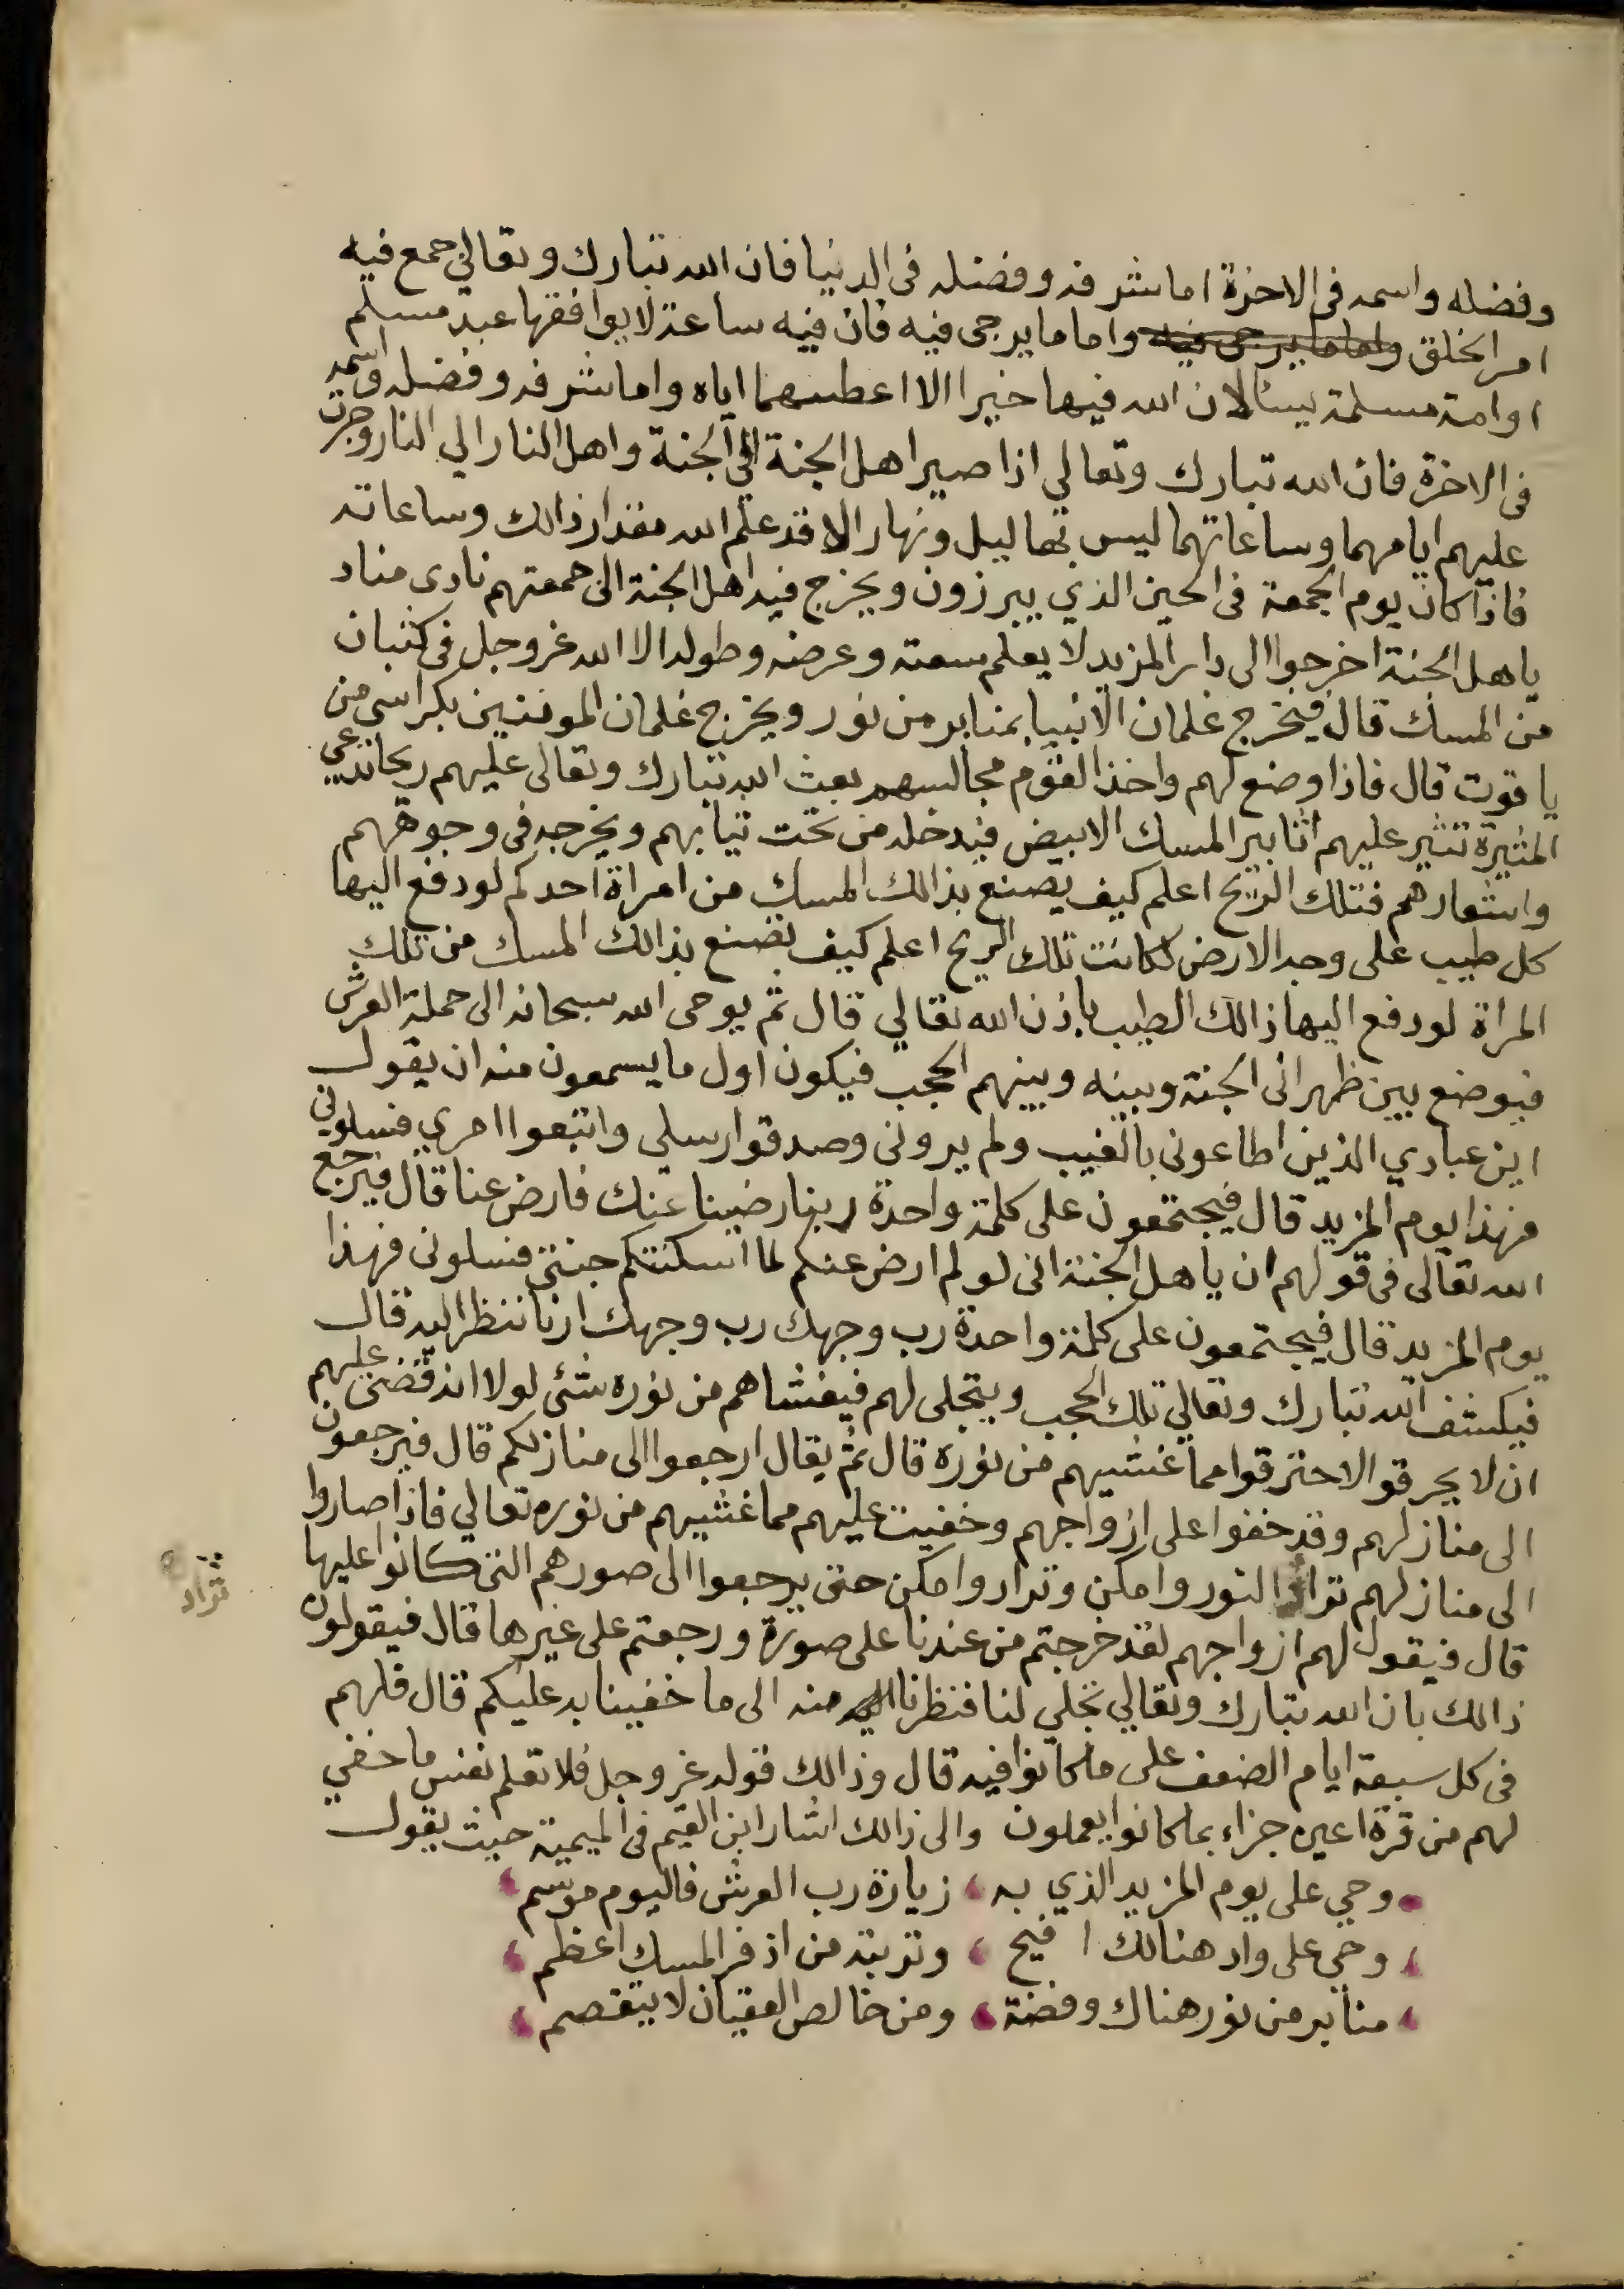 وفضله واسمه فى الاخرة اما شرفه وفضله فى الدنيا فان الله تبارك وتعالى جمع فيه
امر الخلق واما ما يرجى فيه واما ما يرجى فيه فان فيه ساعة لا يوافقها عبد مسلم
او امة مسلمة يسئالان الله فيها خيرا الا اعطىهما اياه واما شرفه وفضله واسمه
فى الاخرة فان الله تبارك وتعالي اذا صير اهل الجنة الى الجنة واهل النار الي النار وجرت
عليهم ايامهما وساعاتهما ليس بها ليل ونهار الا قد علم الله مقدار ذالك وساعاته
فاذا كان يوم الجمعة فى الحين الذي يبرزون ويخرج فيه اهل الجنة الى جمعتهم نادى مناد
ياهل الجنة اخرجوا الى دار المزيد لا يعلم سعته وعرضه وطوله الا الله عز وجل فى كثبان
من المسك قال فيخرج غلمان الانبيا بمنابر من نور ويخرج غلمان المومنين بكراسى من
ياقوت قال فاذا وضع لهم واخذ القوم مجالسهم بعث الله تبارك وتعالى عليهم ريحا تدعي
المثيرة تثير عليهم اثابير المسك الابيض فيدخله من تحت ثيابهم ويخرجه فى وجوههم
واشعارهم فتلك الريح اعلم كيف يصنع بذالك المسك من امراة احدكم لو دفع اليها
كل طيب على وجه الارض لكانت تلك الريح اعلم كيف تصنع بذالك المسك من تلك
المراة لو دفع اليها ذالك الطيب باذن الله تعالي قال ثم يوحى الله سبحانه الى حملة العرش
فيوضع بين ظهرانى الجنة وبينه وبينهم الحجب فيكون اول ما يسمعون منه ان يقول
اين عبادي الذين اطاعونى بالغيب ولم يرونى وصدقوا رسلى واتبعوا امري فسلونى
فهذا يوم المزيد قال فيجتمعون على كلمة واحدة ربنا رضينا عنك فارض عنا قال فيرجع
الله تعالى فى قولهم ان ياهل الجنة انى لو لم ارض عنكم لما اسكنتكم جنتى فسلونى فهذا
يوم المزيد قال فيجتمعون على كلمة واحدة رب وجهك رب وجهك ارنا ننظر اليه قال
فيكشف الله تبارك وتعالي تلك الحجب ويتجلى لهم فيغشاهم من نوره شئى لولا انه قضى عليهم
ان لا يحرقو الاحترقوا مما غشيهم من نوره قال ثم يقال ارجعوا الى منازلكم قال فيرجعون
الى منازلهم وقد خفوا على ازواجهم وخفيت عليهم مما غشيهم من نوره تعالي فاذا صاروا
الى منازلهم تراد النور وامكن وترادوا مكن حتى يرجعوا الى صورهم التى كانوا عليها
تراد
قال فيقول لهم ازواجهم لقد خرجتم من عندنا على صورة ورجعتم على غيرها قال فيقولون
ذالك بان الله تبارك وتعالي تجلي لنا فنظرنا منه الى ما خفينا به عليكم قال فلهم
فى كل سبعة ايام الضعف على ما كانوا فيه قال وذالك قوله عز وجل فلا تعلم نفس ما خفي
لهم من قرة اعين جزاء بما كانوا يعملون والى ذالك اشار ابن القيم فى الميمية حيث يقول
وحي على يوم المزيد الذي به ، زيارة رب العرش فاليوم موسم ،
، وحي على واد هنالك افيح ، وتربته من اذفر المسك اعظم ،
، منابر من نور هناك وفضة ، ومن خالص العقيان لا يتقصم ،